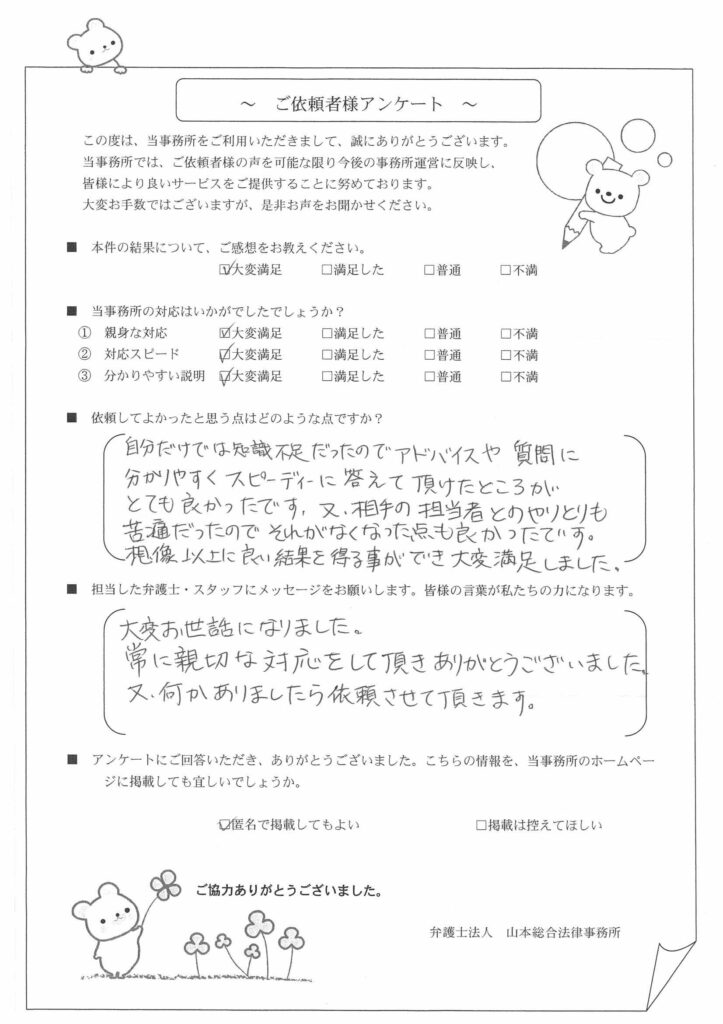 ～ ご依頼者様アンケート ～
この度は、当事務所をご利用いただきまして、誠にありがとうございます。
当事務所では、ご依頼者様の声を可能な限り今後の事務所運営に反映し、
皆様により良いサービスをご提供することに努めております。
大変お手数ではございますが、是非お声をお聞かせください。
■ 本件の結果について、ご感想をお教えください。
☑大変満足 □満足した □普通 □不満
■ 当事務所の対応はいかがでしたでしょうか？
① 親身な対応 ☑大変満足 □満足した □普通 □不満
② 対応スピード ☑大変満足 □満足した □普通 □不満
③ 分かりやすい説明 ☑大変満足 □満足した □普通 □不満
■ 依頼してよかったと思う点はどのような点ですか？
自分だけでは知識不足だったのでアドバイスや質問に
分かりやすくスピーディーに答えて頂けたところが
とても良かったです。又、相手の担当者とのやりとりも
苦痛だったのでそれがなくなった点も良かったです。
想像以上に良い結果を得る事ができ大変満足しました。
■ 担当した弁護士・スタッフにメッセージをお願いします。皆様の言葉が私たちの力になります。
大変お世話になりました。
常に親切な対応をして頂きありがとうございました。
又、何かありましたら依頼させて頂きます。
■ アンケートにご回答いただき、ありがとうございました。こちらの情報を、当事務所のホームペー
ジに掲載しても宜しいでしょうか。
☑匿名で掲載してもよい □掲載は控えてほしい
ご協力ありがとうございました。
弁護士法人 山本総合法律事務所